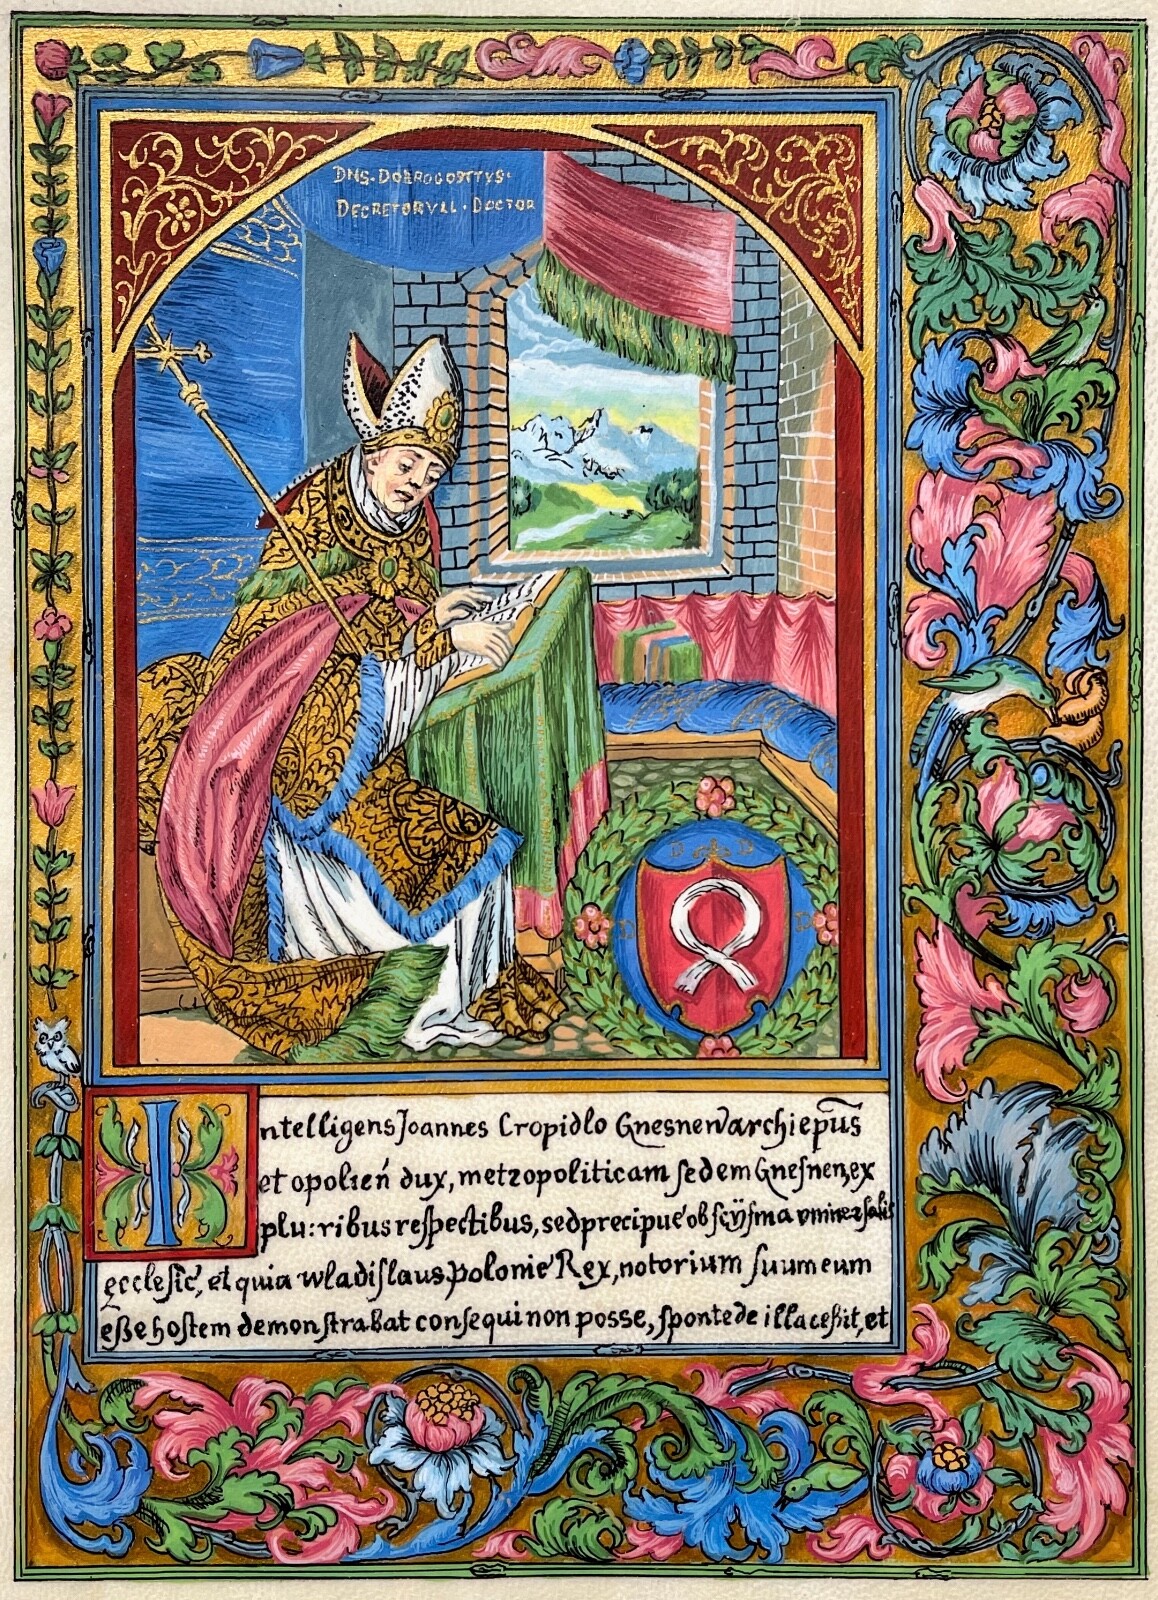 DNS. DOBROGOSTYS.
DECRETORVM. DOCTOR
D D
D D
Intelligens Joannes Cropidlo Gnesneñ archiepūs
et opolień dux, metropoliticam ſedem Gneſneñ, ex
plu:ribus reſpectibus, sed precipue ob ſcÿſma vniuerſalis
ecclesie, et quia wladiſlaus polonie Rex, notorium ſuum eum
eße hoſtem demonſtrabat conſequi non posse, ſponte de illa ceßit, et